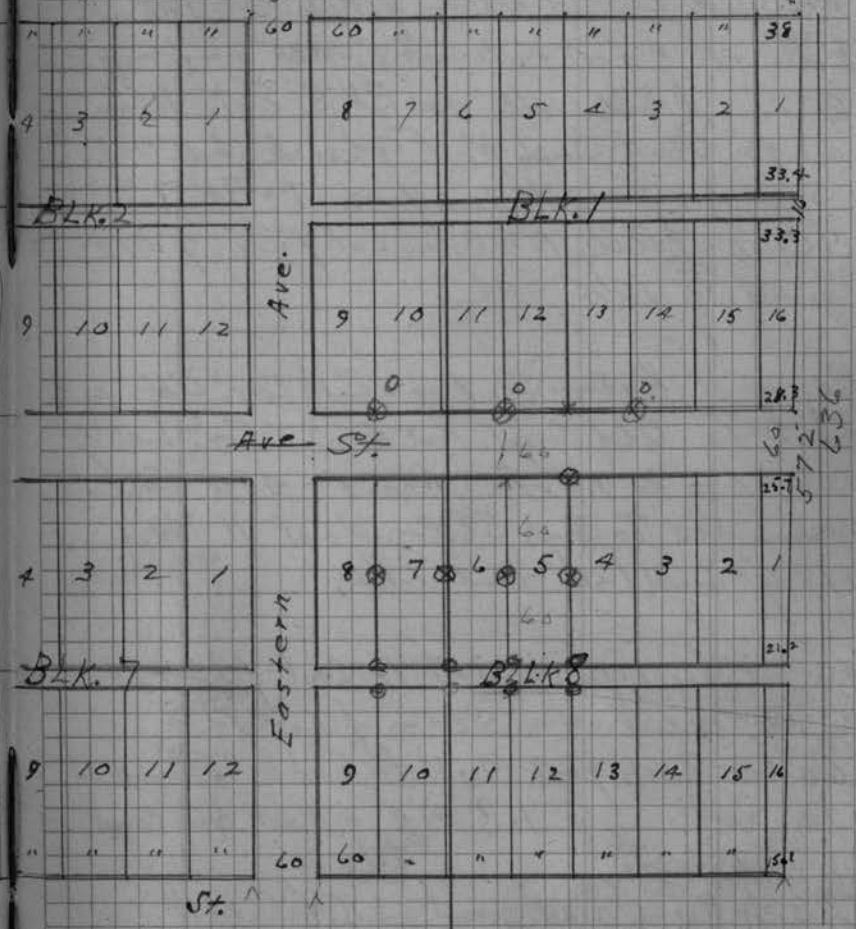 " " " " 60 60 " " " " " " 38
4 3 2 1 8 7 6 5 4 3 2 1
33.4
BLK.2 BLK.1
33.3
Ave.
9 10 11 12 9 10 11 12 13 14 15 16
0 0 0 28.3
Ave St. 160 60
572
636
25.7
60
4 3 2 1 8 7 6 5 4 3 2 1
60
Eastern
21.2
BLK. 7 BLK 8
9 10 11 12 9 10 11 12 13 14 15 16
" " " " 60 60 " " " " " "
St.